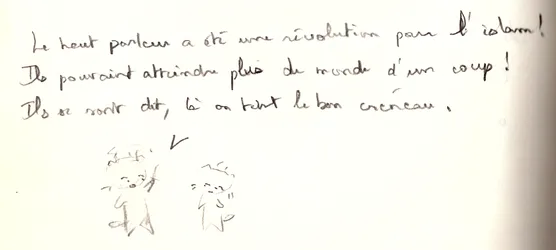 Le haut parleur a été une révolution pour l'islam !
Ils pouvaint atteindre plus de monde d'un coup !
Ils se sont dit, là on tient le bon créneau.